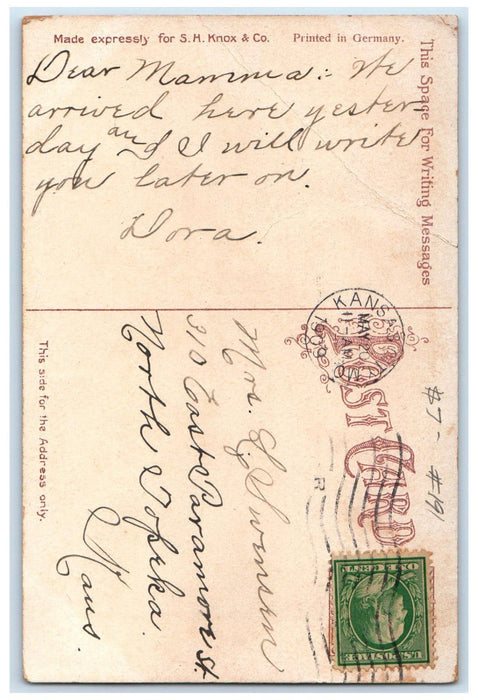 Made expressly for S. H. Knox & Co. Printed in Germany.
This Space For Writing Messages
Dear Mamma:- We
arrived here yester-
day and I will write
you later on.
Dora.
This side for the Address only.
POST CARD
KANSAS
MO.
11-AM
1909
R
Mrs. Swenson
310 East Paramore St.
North Topeka
Kans.
$7- #19
U.S. POSTAGE
ONE CENT